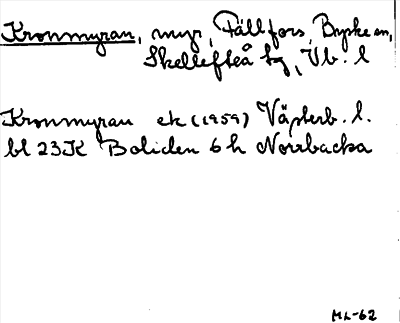 Kronmyran, myr, Fällfors, Byske sn,
Skellefteå tg, Vb. l
Kronmyran ek (1959) Västerb. l.
bl 23K Boliden 6h Norrbacka
ML-62